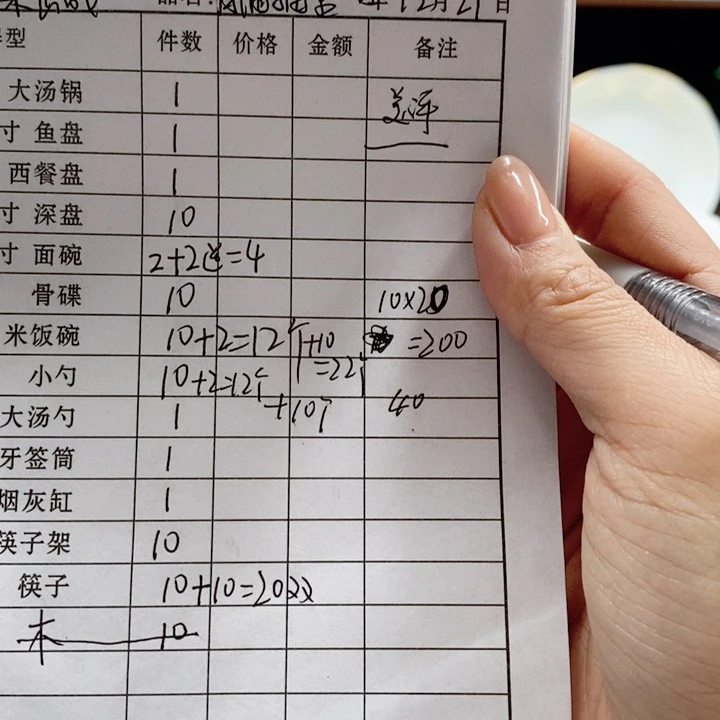 年12月21日
型 件数 价格 金额 备注
大汤锅 1
寸 鱼盘 1
西餐盘 1
寸 深盘 10
寸 面碗 2+2送=4
骨碟 10 10×20
米饭碗 10+2=12个 +10 =200
小勺 10+2=12个 =22个
大汤勺 1 +10个 40
牙签筒 1
烟灰缸 1
筷子架 10
筷子 10+10=20双